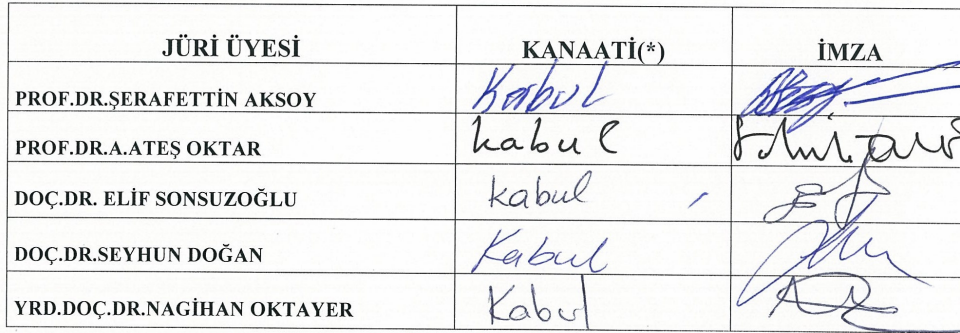 JÜRİ ÜYESİ KANAATİ(*) İMZA
PROF.DR.ŞERAFETTİN AKSOY Kabul
PROF.DR.A.ATEŞ OKTAR kabul
DOÇ.DR. ELİF SONSUZOĞLU kabul
DOÇ.DR.SEYHUN DOĞAN Kabul
YRD.DOÇ.DR.NAGİHAN OKTAYER Kabul